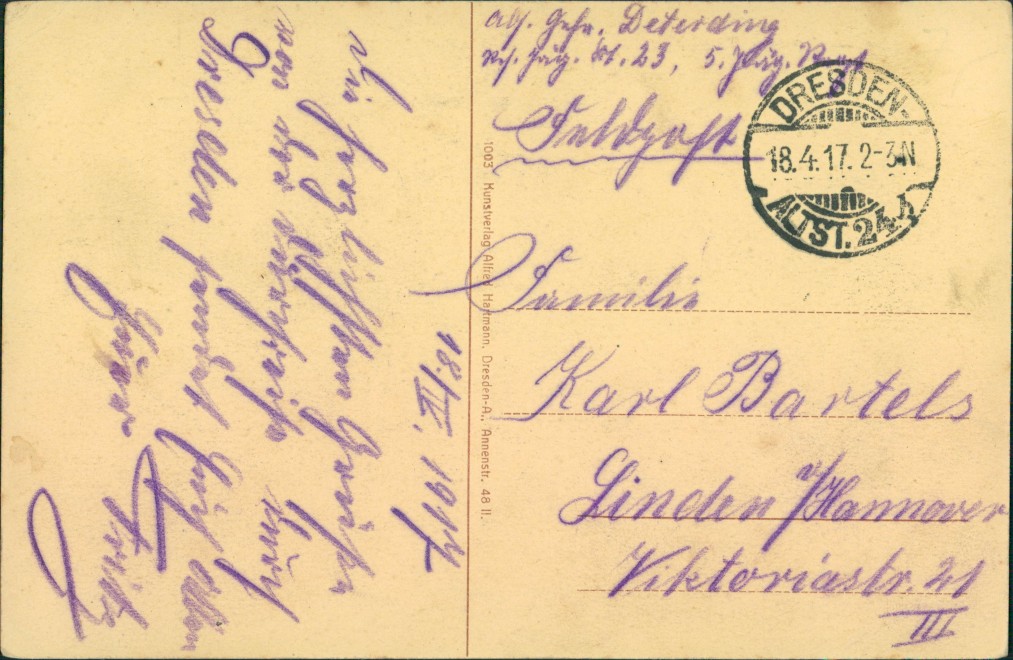 18./IV. 1917
Die herzlichsten Grüße
von der Durchreise durch
Dresden sendet Euch allen
Euer Fritz
Abs. Gefr. Deterding
Res. Jäg. Bt. 23, 5. Jäg. Komp.
Feldpost
DRESDEN-
18.4.17. 2-3N
ALTST. 24
Familie
Karl Bartels
Linden b/Hannover
Viktoriastr. 21
III
1003 Kunstverlag Alfred Hartmann, Dresden-A., Annenstr. 48 II.